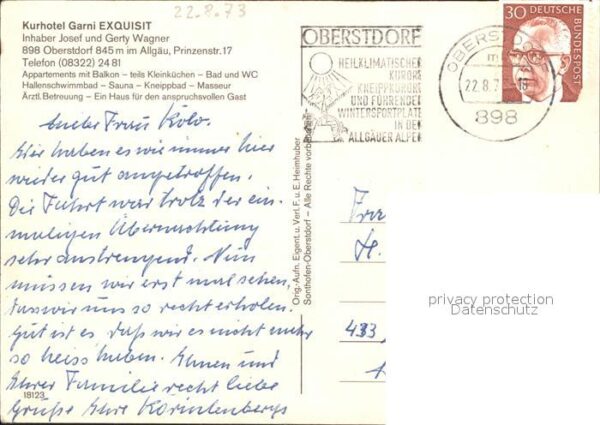 22.8.73
Kurhotel Garni EXQUISIT
Inhaber Josef und Gerty Wagner
898 Oberstdorf 845 m im Allgäu, Prinzenstr. 17
Telefon (08322) 24 81
Appartements mit Balkon – teils Kleinküchen – Bad und WC
Hallenschwimmbad – Sauna – Kneippbad – Masseur
Ärztl. Betreuung – Ein Haus für den anspruchsvollen Gast
Liebe Frau
Wir haben es wie immer hier
wieder gut angetroffen.
Die Fahrt war trotz der ein-
maligen Übernachtung
sehr anstrengend. Nun
müssen wir erst mal sehen,
dass wir uns so recht erholen.
Gut ist es, daß wir es nicht mehr
so heiss haben. Ihnen und
Ihrer Familie recht liebe
Grüße Ihre
18123
Orig.-Aufn. Eigent. u. Verl. F. u. E. Heimhuber
Sonthofen-Oberstdorf – Alle Rechte vorbehalten
OBERSTDORF
HEILKLIMATISCHER
KURORT
KNEIPPKURORT
UND FÜHRENDER
WINTERSPORTPLATZ
IN DEN
ALLGÄUER ALPEN
OBERSTDORF
22.8.7
898
30
DEUTSCHE
BUNDESPOST
433
privacy protection
Datenschutz